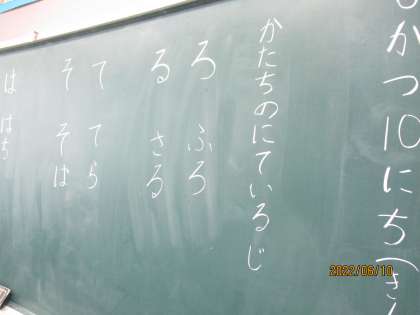 がつ10にち(き
かたちのにているじ
ろ ふろ
る さる
て てら
そ そば
は はち
2022/06/10